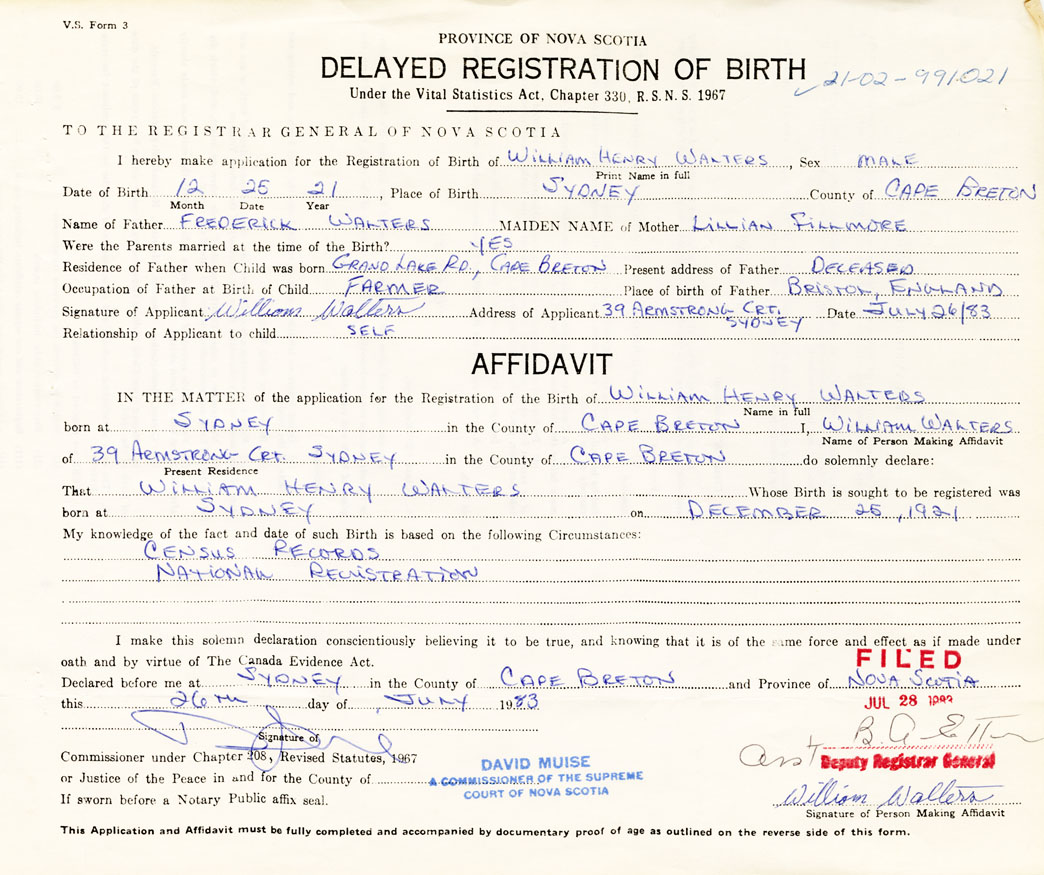 V.S. Form 3
PROVINCE OF NOVA SCOTIA
DELAYED REGISTRATION OF BIRTH 21-02-991021
Under the Vital Statistics Act, Chapter 330, R.S.N.S. 1967
TO THE REGISTRAR GENERAL OF NOVA SCOTIA
I hereby make application for the Registration of Birth of WILLIAM HENRY WALTERS, Sex MALE
Print Name in full
Date of Birth 12 25 21, Place of Birth SYDNEY County of CAPE BRETON
Month Date Year
Name of Father FREDERICK WALTERS MAIDEN NAME of Mother LILLIAN FILLMORE
Were the Parents married at the time of the Birth? YES
Residence of Father when Child was born GRAND LAKE RD., CAPE BRETON Present address of Father DECEASED
Occupation of Father at Birth of Child FARMER Place of birth of Father BRISTOL, ENGLAND
Signature of Applicant William Walters Address of Applicant 39 ARMSTRONG CRT. SYDNEY Date JULY 26/83
Relationship of Applicant to child SELF
AFFIDAVIT
IN THE MATTER of the application for the Registration of the Birth of WILLIAM HENRY WALTERS
Name in full
born at SYDNEY in the County of CAPE BRETON I, WILLIAM WALTERS
Name of Person Making Affidavit
of 39 ARMSTRONG CRT. SYDNEY in the County of CAPE BRETON do solemnly declare:
Present Residence
That WILLIAM HENRY WALTERS Whose Birth is sought to be registered was
born at SYDNEY on DECEMBER 25, 1921
My knowledge of the fact and date of such Birth is based on the following Circumstances:
CENSUS RECORDS
NATIONAL REGISTRATION
I make this solemn declaration conscientiously believing it to be true, and knowing that it is of the same force and effect as if made under
oath and by virtue of The Canada Evidence Act.
FILED
Declared before me at SYDNEY in the County of CAPE BRETON and Province of NOVA SCOTIA
this 26TH day of JULY 1983
JUL 28 1983
Signature of
B A Etter
Commissioner under Chapter 208, Revised Statutes, 1967
DAVID MUISE
Asst Deputy Registrar General
or Justice of the Peace in and for the County of
A COMMISSIONER OF THE SUPREME
COURT OF NOVA SCOTIA
If sworn before a Notary Public affix seal.
William Walters
Signature of Person Making Affidavit
This Application and Affidavit must be fully completed and accompanied by documentary proof of age as outlined on the reverse side of this form.